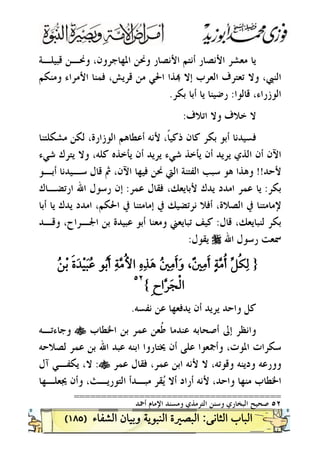 فوزى محمد أبوزيد
أمراض الأمة وبصيرة النبوة
يا معشر الأنصار أنتم الأنصار ونحن المهاجرون، ونحن قبيلة
النبي، ولا تعترف العرب إلا بهذا الحي من قريش، فمنا الأمراء ومنكم
الوزراء، قالوا: رضينا يا أبا بكر.
لا خلاف ولا ائتلاف:
فسيدنا أبو بكر كان ذكياً، لأنه أعطاهم الوزارة، لكن مشكلتنا
الآن أن الذي يريد أن يأخذ شيء يريد أن يأخذه كله، ولا يترك شيء
لأحد!! وهذا هو سبب الفتنة التي نحن فيها الآن، ثم قال سيدنا أبو
بكر: يا عمر امدد يدك لأبايعك، فقال عمر: إن رسول الله ارتضاك
لإمامتنا في الصلاة، أفلا نرتضيك في إمامتنا في الحكم، امدد يدك يا أبا
بكر لنبايعك، قال: كيف تبايعني ومعنا أبو عبيدة بن الجراح، وقد
سمعت رسول الله يقول:
{ لِكُلِّ أُمَّةٍ أَمِينٌ، وَأَمِينُ هَذِهِ الأُمَّةِ أَبُو عُبَيْدَةَ بْنُ
الْجَرَّاحِ }٥٢
كل واحد يريد أن يدفعها عن نفسه.
وانظر إلى أصحابه عندما طُعن عمر بن الخطاب وجاءته
سكرات الموت، وأجمعوا على أن يختاروا ابنه عبد الله بن عمر لصلاحه
وورعه ودينه وقوته، لا لأنه ابن عمر، فقال عمر: لا، يكفي آل
الخطاب منها واحد، لأنه أراد ألا يُقر مبدأ التوريث، وأن يجعلها
٥٢ صحيح البخاري وسنن الترمذي ومسند الإمام أحمد
الباب الثانى: البصيرة النبوية وبيان الشفاء (١٨٥)